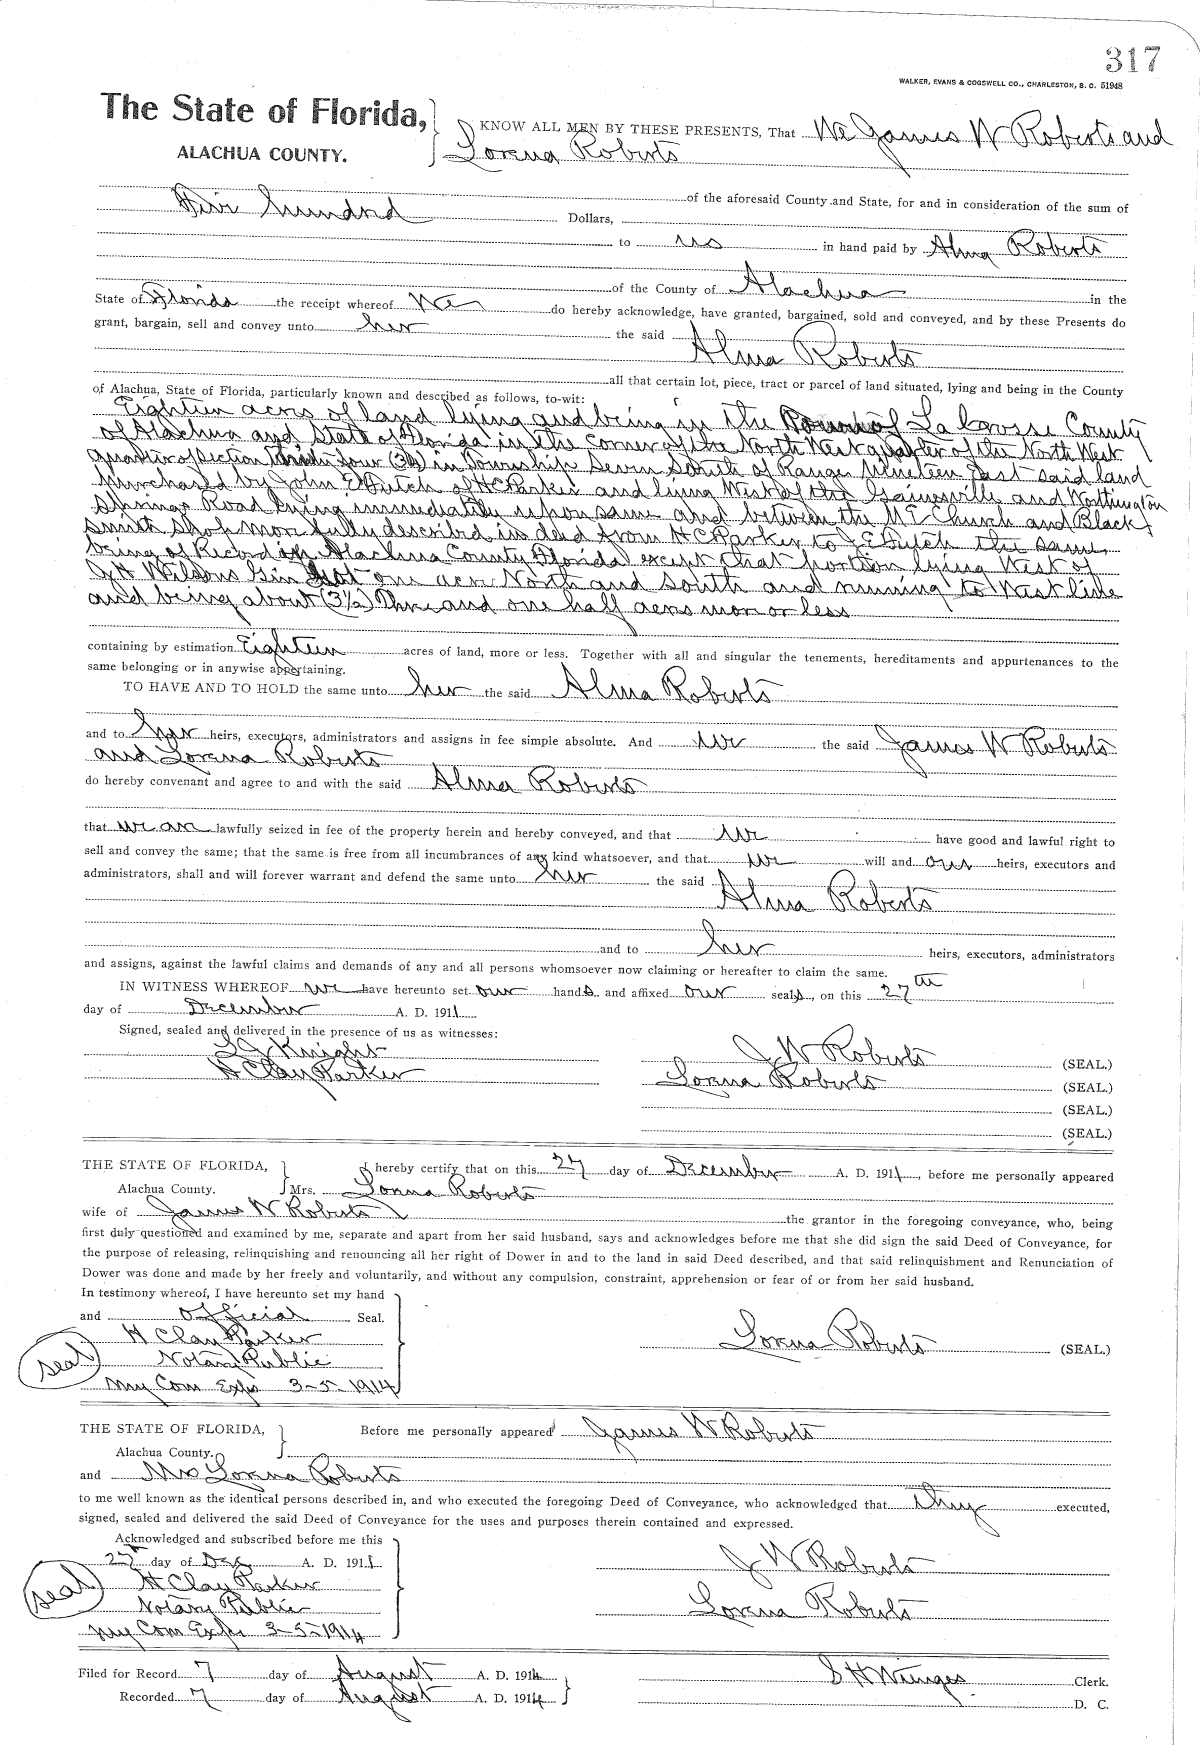 317
WALKER, EVANS & COGSWELL CO., CHARLESTON, S. C. 51948
The State of Florida,
ALACHUA COUNTY.
KNOW ALL MEN BY THESE PRESENTS, That We James W Roberts and
Lorena Roberts
of the aforesaid County and State, for and in consideration of the sum of
Five hundred Dollars,
to us in hand paid by Alma Roberts
of the County of Alachua in the
State of Florida the receipt whereof We do hereby acknowledge, have granted, bargained, sold and conveyed, and by these Presents do
grant, bargain, sell and convey unto her the said Alma Roberts
all that certain lot, piece, tract or parcel of land situated, lying and being in the County
of Alachua, State of Florida, particularly known and described as follows, to-wit:
Eighteen acres of land lying and being in the Town of La Crosse County
of Alachua and State of Florida in the corner of the North West quarter of the North West
quarter of section thirty four (34) in Township Seven South of Range Nineteen East said land
purchased by John E Futch of H C Parker and lying West of the Gainesville and Worthington
Springs Road lying immediately upon same and between the M E Church and Black
smith shop more fully described in deed from H C Parker to J E Futch the same
being of Record in Alachua County Florida except that portion lying West of
J H Wilsons Gin Lot one acre North and South and running to West line
and being about (3½) Three and one half acres more or less
containing by estimation Eighteen acres of land, more or less. Together with all and singular the tenements, hereditaments and appurtenances to the
same belonging or in anywise appertaining.
TO HAVE AND TO HOLD the same unto her the said Alma Roberts
and to her heirs, executors, administrators and assigns in fee simple absolute. And we the said James W Roberts
and Lorena Roberts
do hereby convenant and agree to and with the said Alma Roberts
that we are lawfully seized in fee of the property herein and hereby conveyed, and that we have good and lawful right to
sell and convey the same; that the same is free from all incumbrances of any kind whatsoever, and that we will and our heirs, executors and
administrators, shall and will forever warrant and defend the same unto her the said Alma Roberts
and to her heirs, executors, administrators
and assigns, against the lawful claims and demands of any and all persons whomsoever now claiming or hereafter to claim the same.
IN WITNESS WHEREOF we have hereunto set our hands and affixed our seals, on this 27th
day of December A. D. 1911
Signed, sealed and delivered in the presence of us as witnesses:
L J Knight
H Clay Parker
J W Roberts (SEAL.)
Lorena Roberts (SEAL.)
(SEAL.)
(SEAL.)
THE STATE OF FLORIDA,
Alachua County.
I hereby certify that on this 27 day of December A. D. 1911, before me personally appeared
Mrs. Lorena Roberts
wife of James W Roberts the grantor in the foregoing conveyance, who, being
first duly questioned and examined by me, separate and apart from her said husband, says and acknowledges before me that she did sign the said Deed of Conveyance, for
the purpose of releasing, relinquishing and renouncing all her right of Dower in and to the land in said Deed described, and that said relinquishment and Renunciation of
Dower was done and made by her freely and voluntarily, and without any compulsion, constraint, apprehension or fear of or from her said husband.
In testimony whereof, I have hereunto set my hand
and official Seal.
H Clay Parker
Notary Public
My Com Exps 3-5-1914
seal
Lorena Roberts (SEAL.)
THE STATE OF FLORIDA,
Alachua County.
Before me personally appeared James W Roberts
and Mrs Lorena Roberts
to me well known as the identical persons described in, and who executed the foregoing Deed of Conveyance, who acknowledged that they executed,
signed, sealed and delivered the said Deed of Conveyance for the uses and purposes therein contained and expressed.
Acknowledged and subscribed before me this
27th day of Dec A. D. 1911
H Clay Parker
Notary Public
My Com Exps 3-5-1914
seal
J W Roberts
Lorena Roberts
Filed for Record 7 day of August A. D. 1914
Recorded 7 day of August A. D. 1914
S H Wienges Clerk.
D. C.